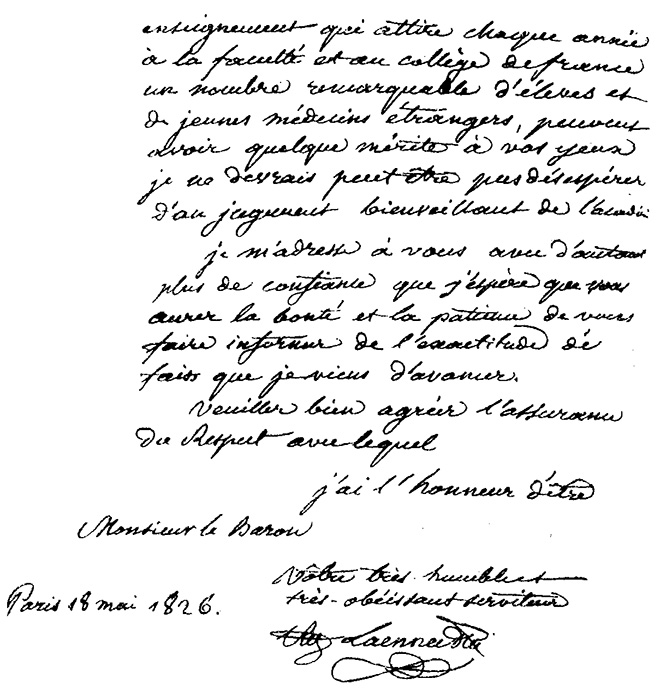 enseignement qui attire chaque année
à la faculté et au collège de france
un nombre remarquable d'élèves et
de jeunes médecins étrangers, peuvent
avoir quelque mérite à vos yeux
je ne devrais peut être pas désespérer
d'un jugement bienveillant de l'académie
je m'adresse à vous avec d'autant
plus de confiance que j'espère que vous
aurez la bonté et la patience de vous
faire informer de l'exactitude de
faits que je viens d'avancer.
Veuillez bien agréer l'assurance
du Respect avec lequel
j'ai l'honneur d'être
Monsieur le Baron
Votre très humble et
très-obéissant serviteur
Paris 18 mai 1826.
Laennec